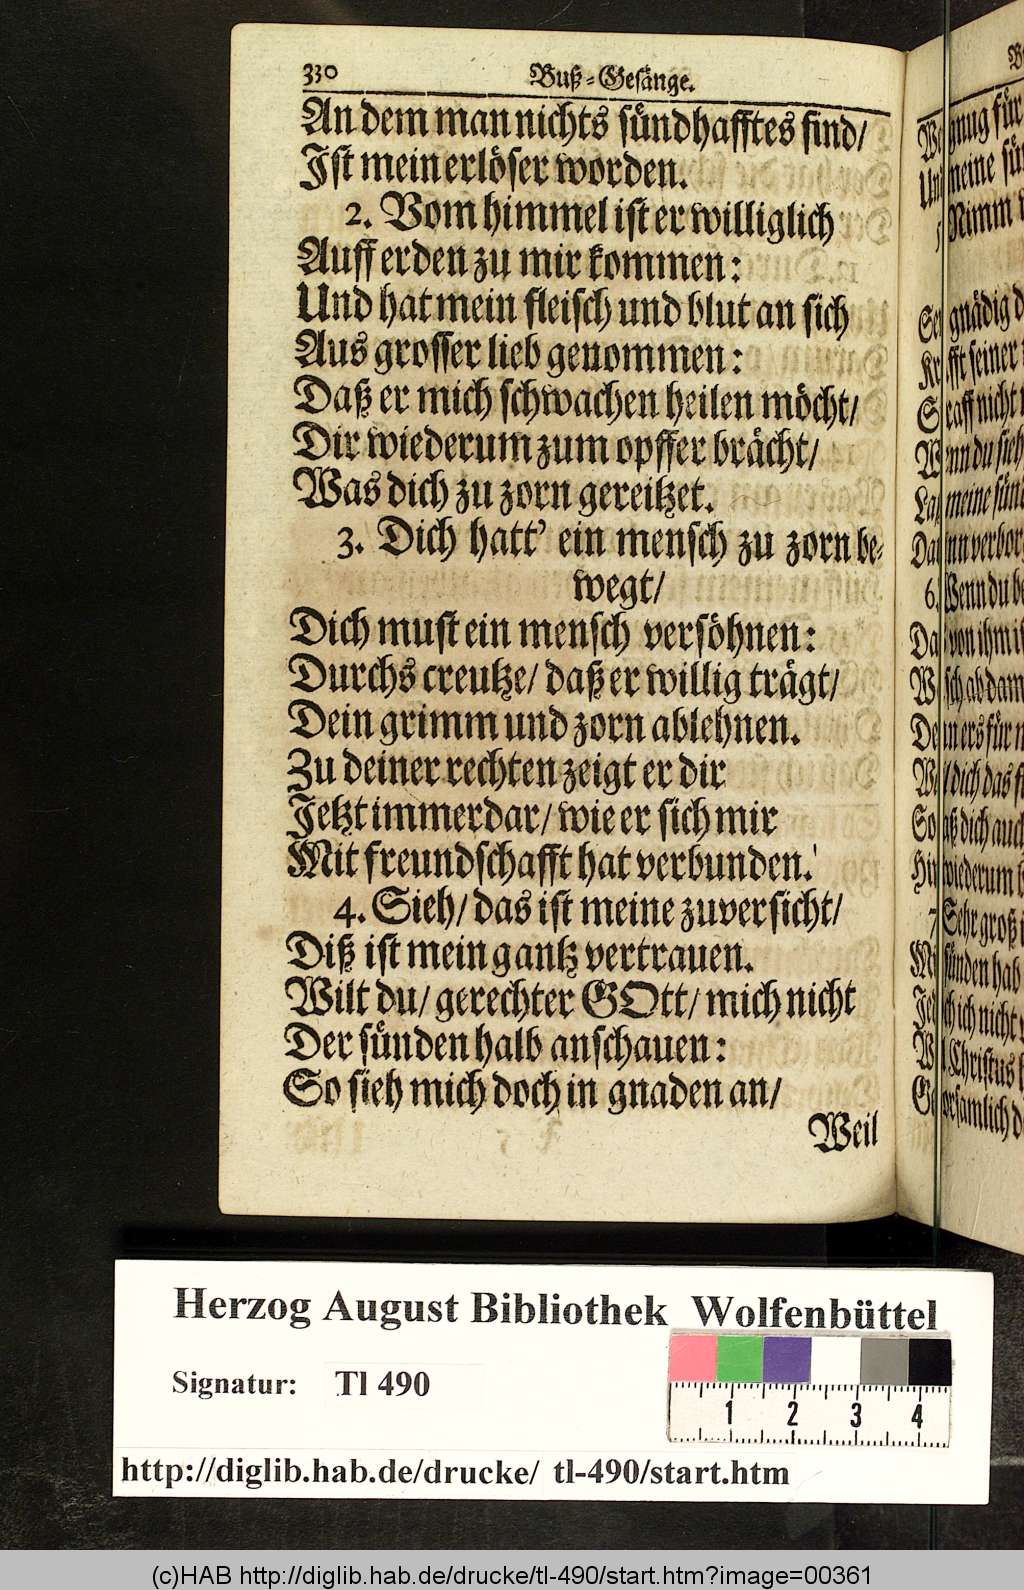 330 Buß-Gesänge.
An dem man nichts sündhafftes find/
Ist mein erlöser worden.
2. Vom himmel ist er williglich
Auff erden zu mir kommen:
Und hat mein fleisch und blut an sich
Aus grosser lieb genommen:
Daß er mich schwachen heilen möcht/
Dir wiederum zum opffer brächt/
Was dich zu zorn gereitzet.
3. Dich hatt' ein mensch zu zorn be-
wegt/
Dich must ein mensch versöhnen:
Durchs creutze/ daß er willig trägt/
Dein grimm und zorn ablehnen.
Zu deiner rechten zeigt er dir
Jetzt immerdar/ wie er sich mir
Mit freundschafft hat verbunden.
4. Sieh/ das ist meine zuversicht/
Diß ist mein gantz vertrauen.
Wilt du/ gerechter GOtt/ mich nicht
Der sünden halb anschauen:
So sieh mich doch in gnaden an/
Weil
gnug für
meine
Nimm
gnädig
seiner
nicht
du
meine
6. Wenn du
von ihm
ab
ers für
dich das
dich auch
wiederum
7 Sehr groß
sünden hab
ich nicht
Christus
Herzog August Bibliothek Wolfenbüttel
Signatur: Tl 490
1 2 3 4
http://diglib.hab.de/drucke/ tl-490/start.htm
(c)HAB http://diglib.hab.de/drucke/tl-490/start.htm?image=00361